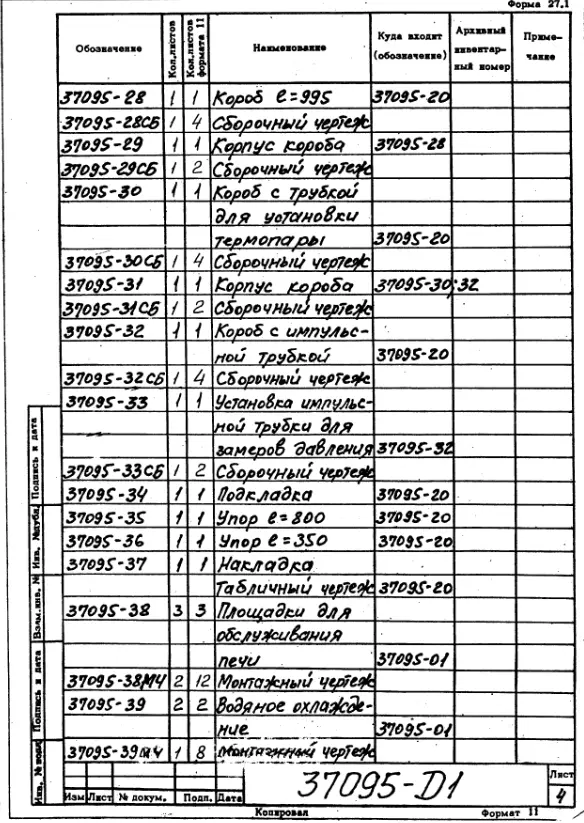 Форма 27.1
Обозначение Кол.листов Кол.листов формата 11 Наименование Куда входит (обозначение) Архивный инвентарный номер Примечание
37095-28 1 1 Короб ℓ=995 37095-20
37095-28СБ 1 4 Сборочный чертеж
37095-29 1 1 Корпус короба 37095-28
37095-29СБ 1 2 Сборочный чертеж
37095-30 1 1 Короб с трубкой
для установки
термопары 37095-20
37095-30СБ 1 4 Сборочный чертеж
37095-31 1 1 Корпус короба 37095-30;32
37095-31СБ 1 2 Сборочный чертеж
37095-32 1 1 Короб с импульс-
ной трубкой 37095-20
37095-32СБ 1 4 Сборочный чертеж
37095-33 1 1 Установка импульс-
ной трубки для
замеров давления 37095-32
37095-33СБ 1 2 Сборочный чертеж
37095-34 1 1 Подкладка 37095-20
37095-35 1 1 Упор ℓ=800 37095-20
37095-36 1 1 Упор ℓ=350 37095-20
37095-37 1 1 Накладка
Табличный чертеж 37095-20
37095-38 3 3 Площадки для
обслуживания
печи 37095-01
37095-38МЧ 2 12 Монтажный чертеж
37095-39 2 2 Водяное охлажде-
ние 37095-01
37095-39МЧ 1 8 Монтажный чертеж
Подпись и дата
Инв. №дубл
Взам.инв. №
Подпись и дата
Инв. №
37095-D1
Лист
4
Изм Лист № докум. Подп. Дата
Копировал Формат 11